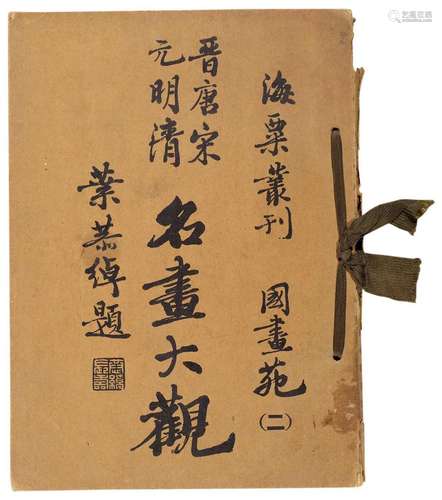 海粟叢刊 國畫苑(二)
晋唐宋
元明清
名畫大觀
葉恭綽題